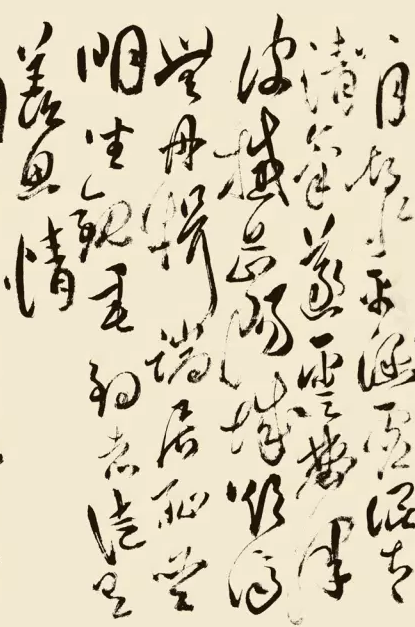 八月湖水平涵虛混太
清氣蒸雲夢澤
波撼岳陽城欲濟
無舟楫端居恥聖
明坐觀垂釣者徒有
羨魚情